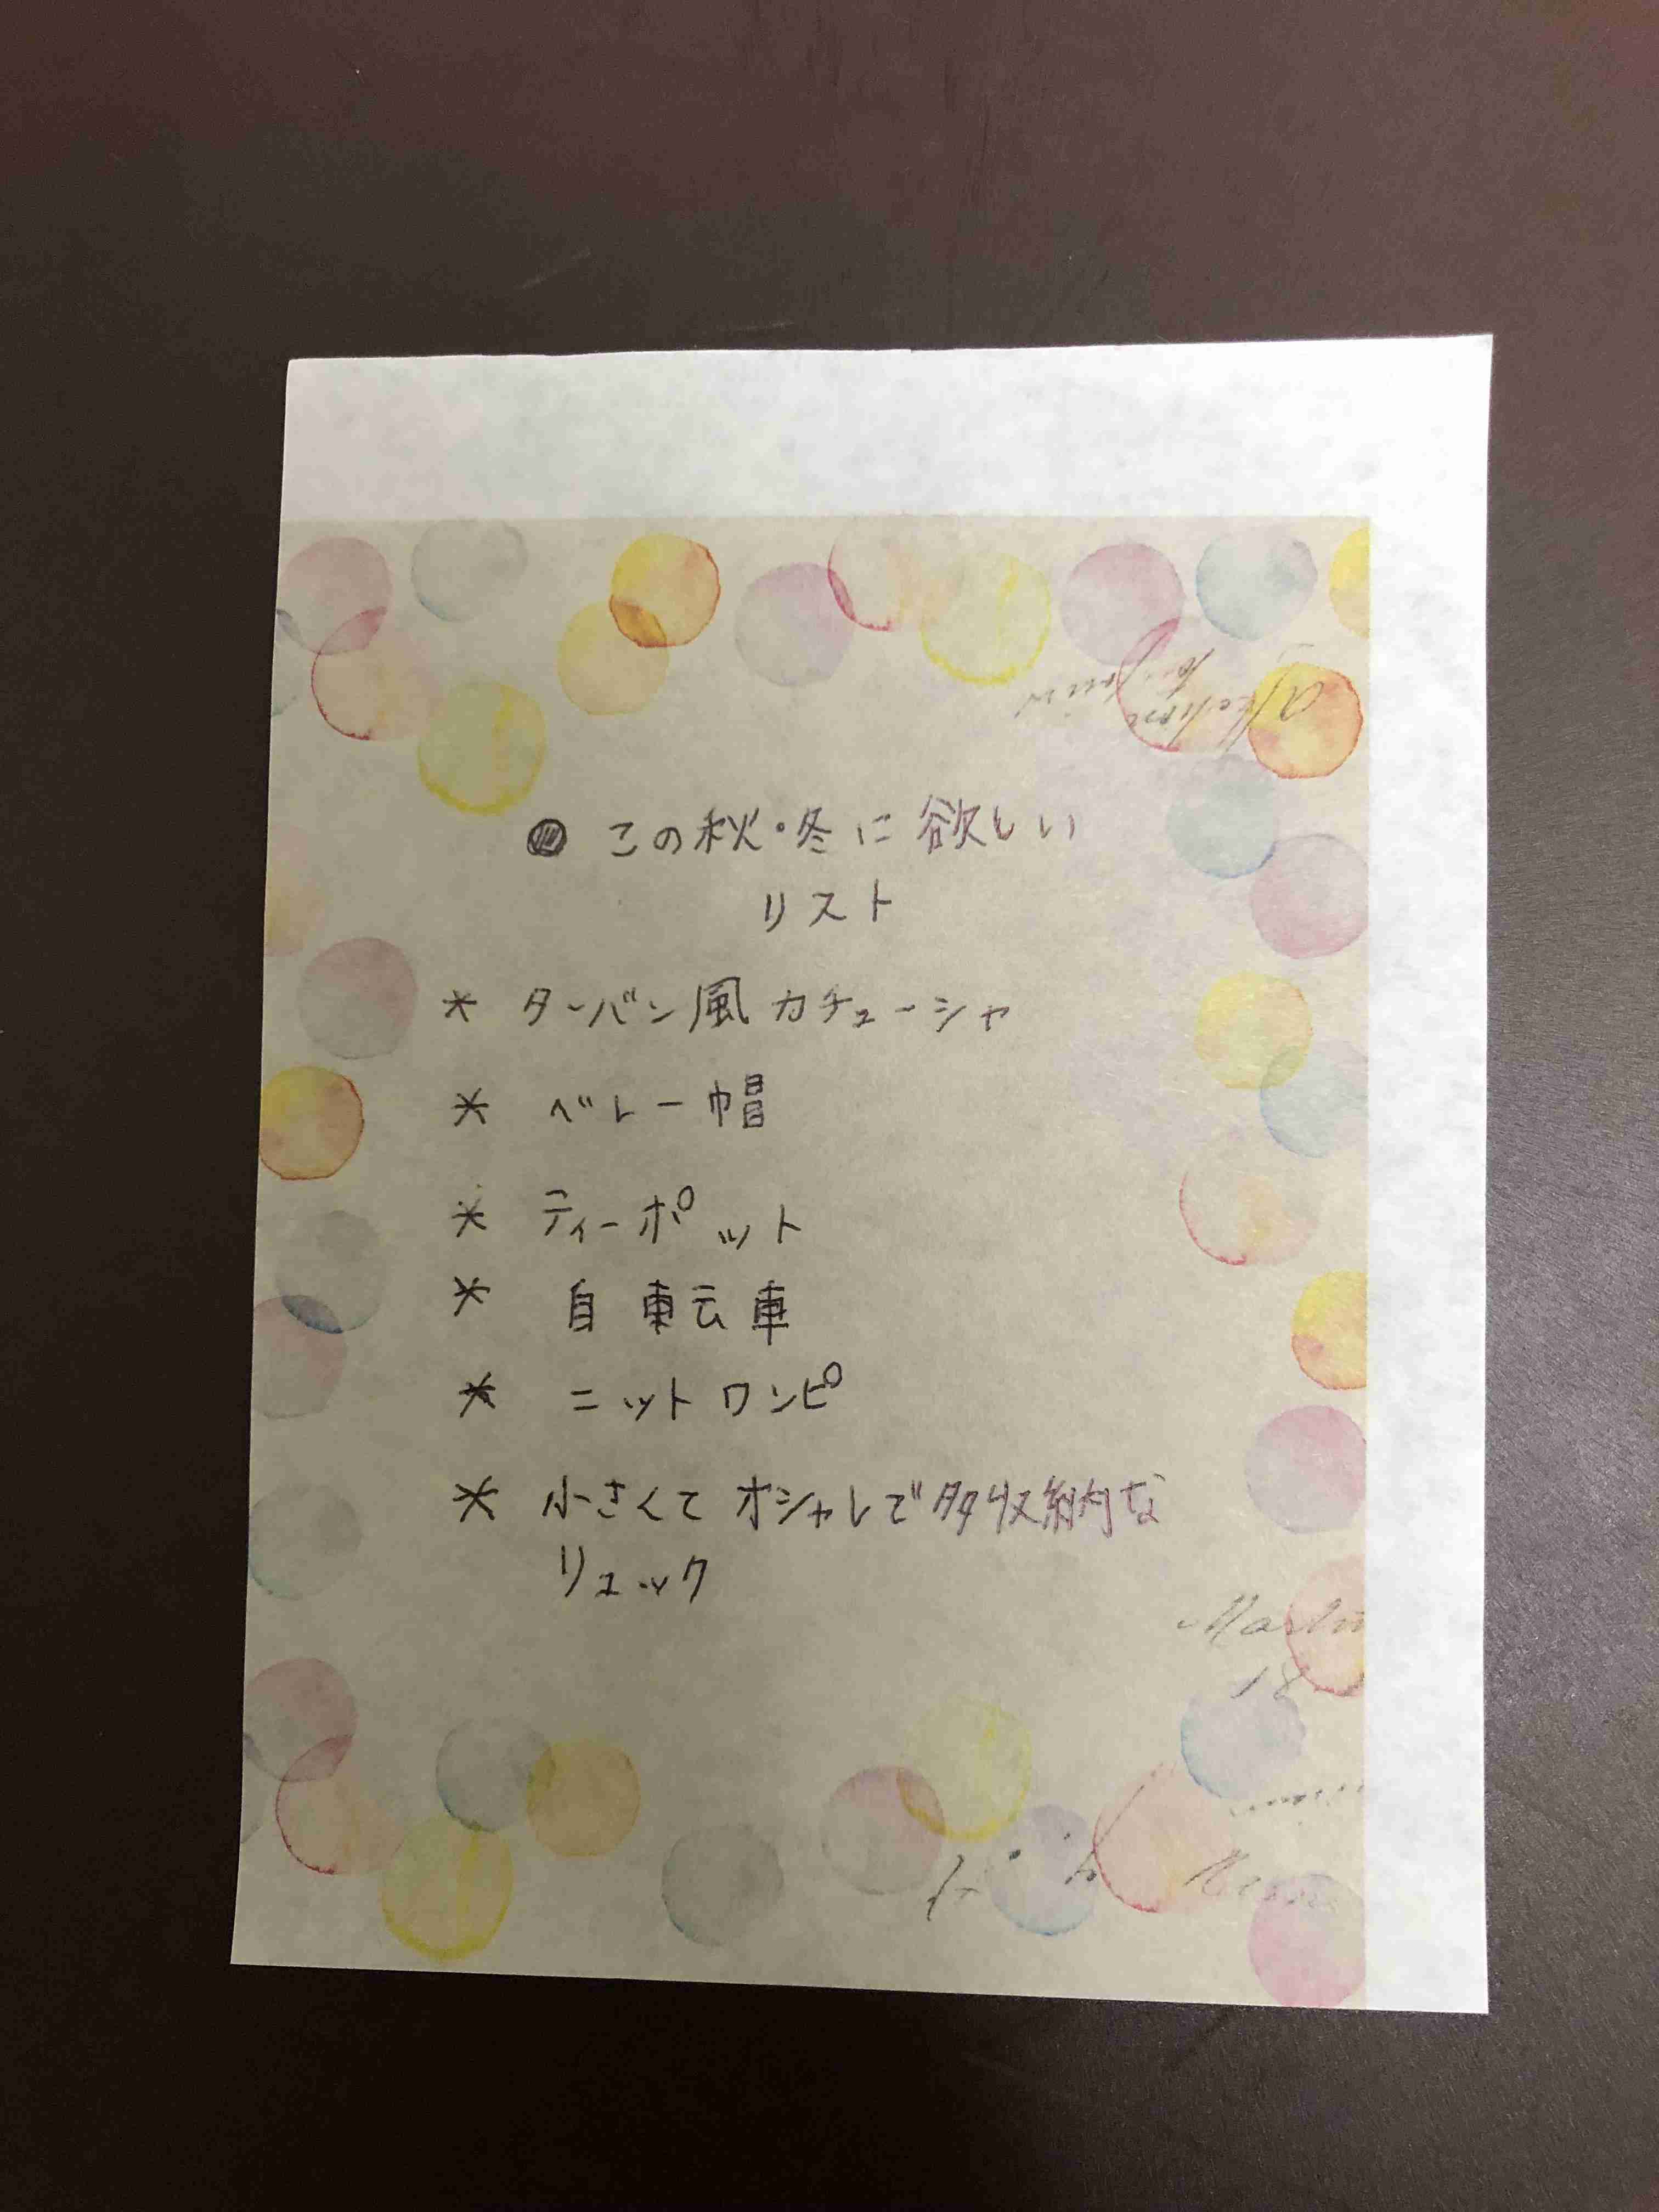 ● この秋・冬に欲しい
リスト
* ターバン風カチューシャ
* ベレー帽
* ティーポット
* 自転車
* ニットワンピ
* 小さくてオシャレで多収納な
リュック